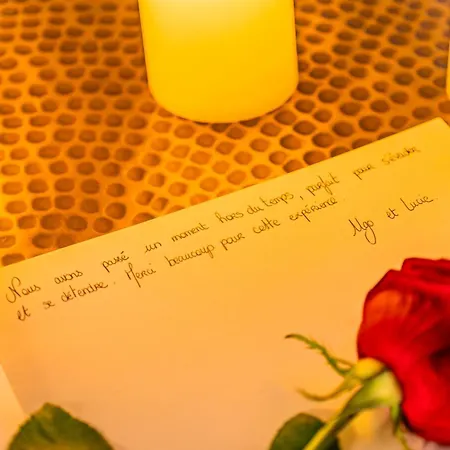 Nous avons passé un moment hors du temps, parfait pour s'évader
et se détendre. Merci beaucoup pour cette expérience
Ugo et Lucie